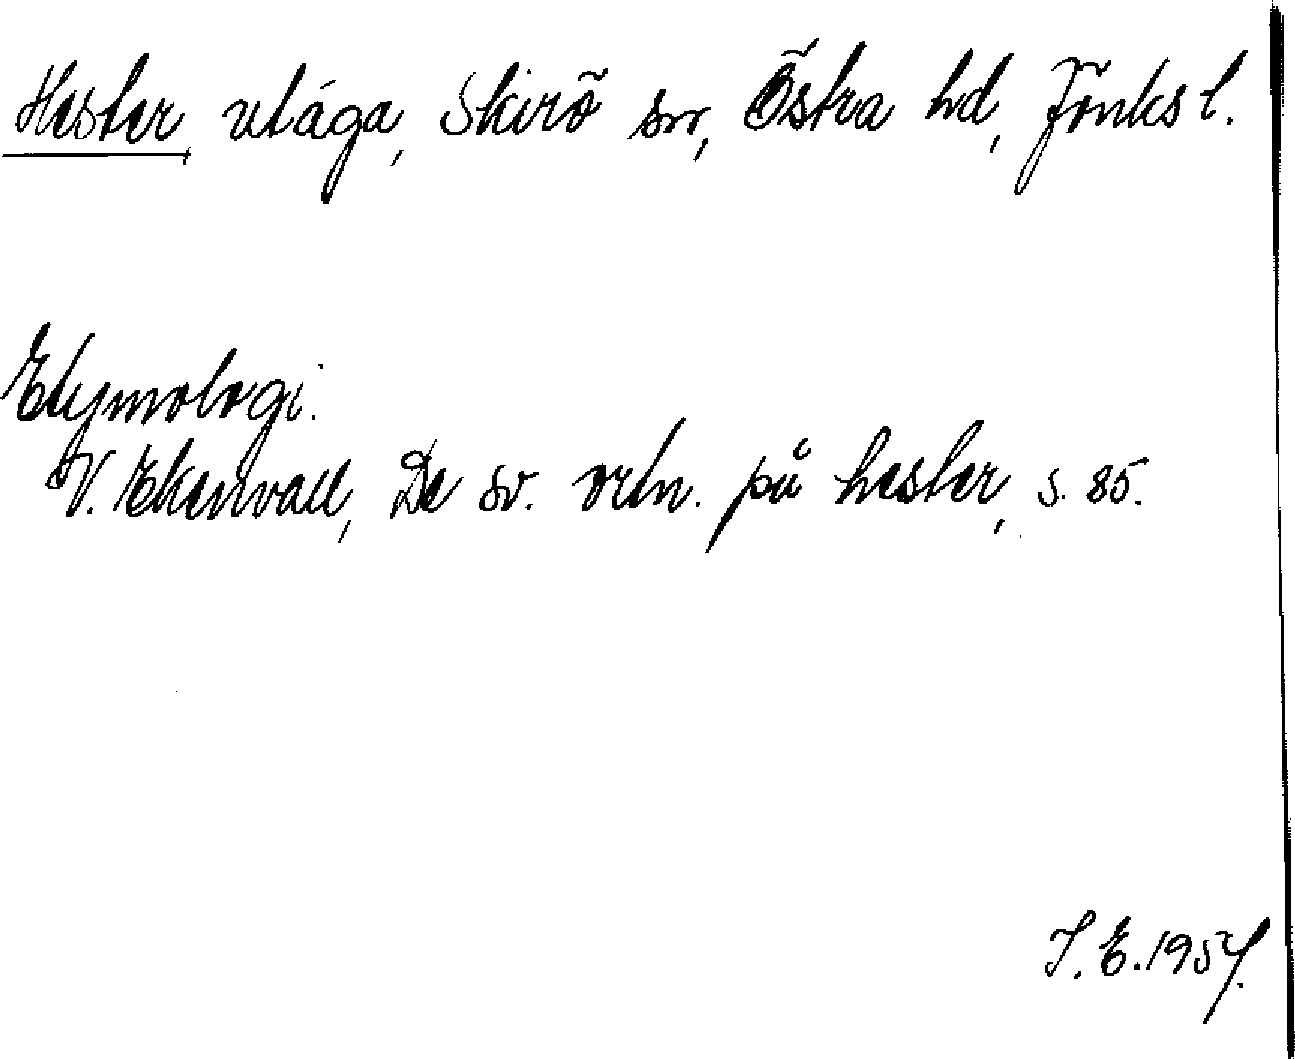 Hester, utäga, Skirö sn, Östra hd, Jönks l.
Etymologi.
V. Ekenvall, De sv. ortn. på hester, s. 85.
I. E. 1957.